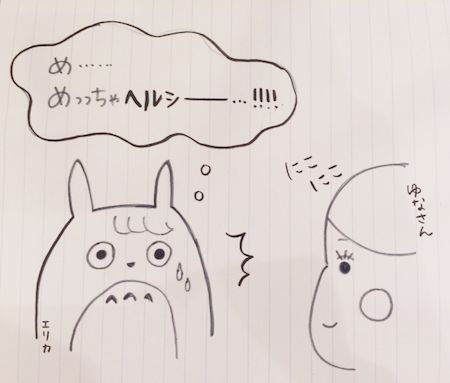 め……
めっっちゃヘルシー――…!!!!
にこ
にこ
ゆなさん
エリカ